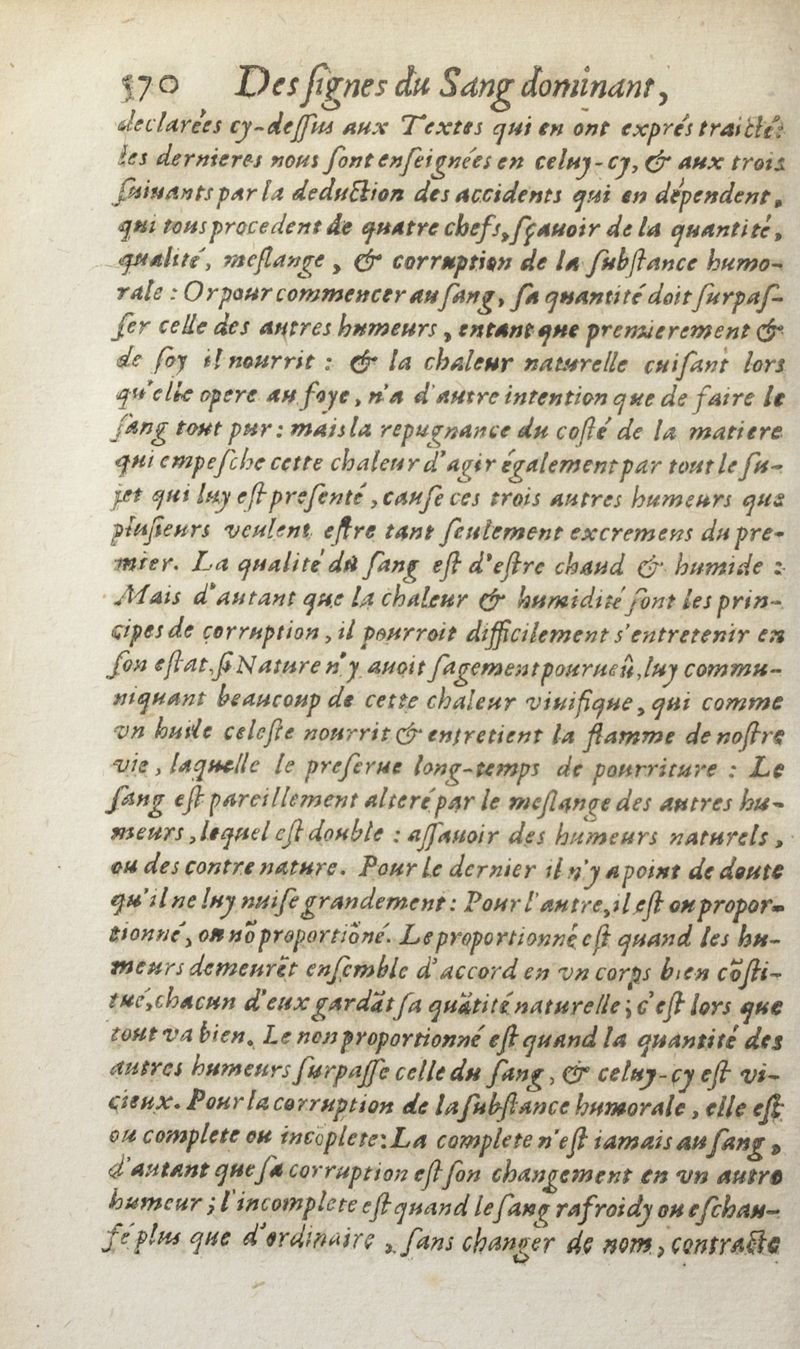 370 Des ſignes du Sang dominant,
declarées cy-deſſus aux Textes qui en ont exprés traicté:
les dernieres nous ſont enſeignées en celuy-cy, & aux trois
ſuiuants par la deduction des accidents qui en dépendent,
qui tous procedent de quatre chefs, ſçauoir de la quantité,
qualité, meſlange, & corruption de la ſubſtance humo-
rale : Or pour commencer au ſang, ſa quantité doit ſurpaſ-
ſer celle des autres humeurs, entant que premierement &
de ſoy il nourrit : & la chaleur naturelle cuiſant lors
qu'elle opere au foye, n'a d'autre intention que de faire le
ſang tout pur : mais la repugnance du coſté de la matiere
qui empeſche cette chaleur d'agir également par tout le ſu-
jet qui luy eſt preſenté, cauſe ces trois autres humeurs que
pluſieurs veulent eſtre tant ſeulement excremens du pre-
mier. La qualité du ſang eſt d'eſtre chaud & humide :
Mais d'autant que la chaleur & humidité ſont les prin-
cipes de corruption, il pourroit difficilement s'entretenir en
ſon eſtat, ſi Nature n'y auoit ſagement pourueû, luy commu-
niquant beaucoup de cette chaleur viuifique, qui comme
vn huile celeſte nourrit & entretient la flamme de noſtre
vie, laquelle le preſerue long-temps de pourriture : Le
ſang eſt pareillement alteré par le meſlange des autres hu-
meurs, lequel eſt double : aſſauoir des humeurs naturels,
ou des contre nature. Pour le dernier il n'y a point de doute
qu'il ne luy nuiſe grandement : Pour l'autre, il eſt ou propor-
tionné, ou nõ proportiõné. Le proportionné eſt quand les hu-
meurs demeurẽt enſemble d'accord en vn corps bien cõſti-
tué, chacun d'eux gardãt ſa quãtité naturelle ; c'eſt lors que
tout va bien. Le non proportionné eſt quand la quantité des
autres humeurs ſurpaſſe celle du ſang, & celuy-cy eſt vi-
cieux. Pour la corruption de la ſubſtance humorale, elle eſt
ou complete ou incõplete : La complete n'eſt iamais au ſang,
d'autant que ſa corruption eſt ſon changement en vn autre
humeur ; l'incomplete eſt quand le ſang rafroidy ou eſchau-
fé plus que d'ordinaire, ſans changer de nom, contracte